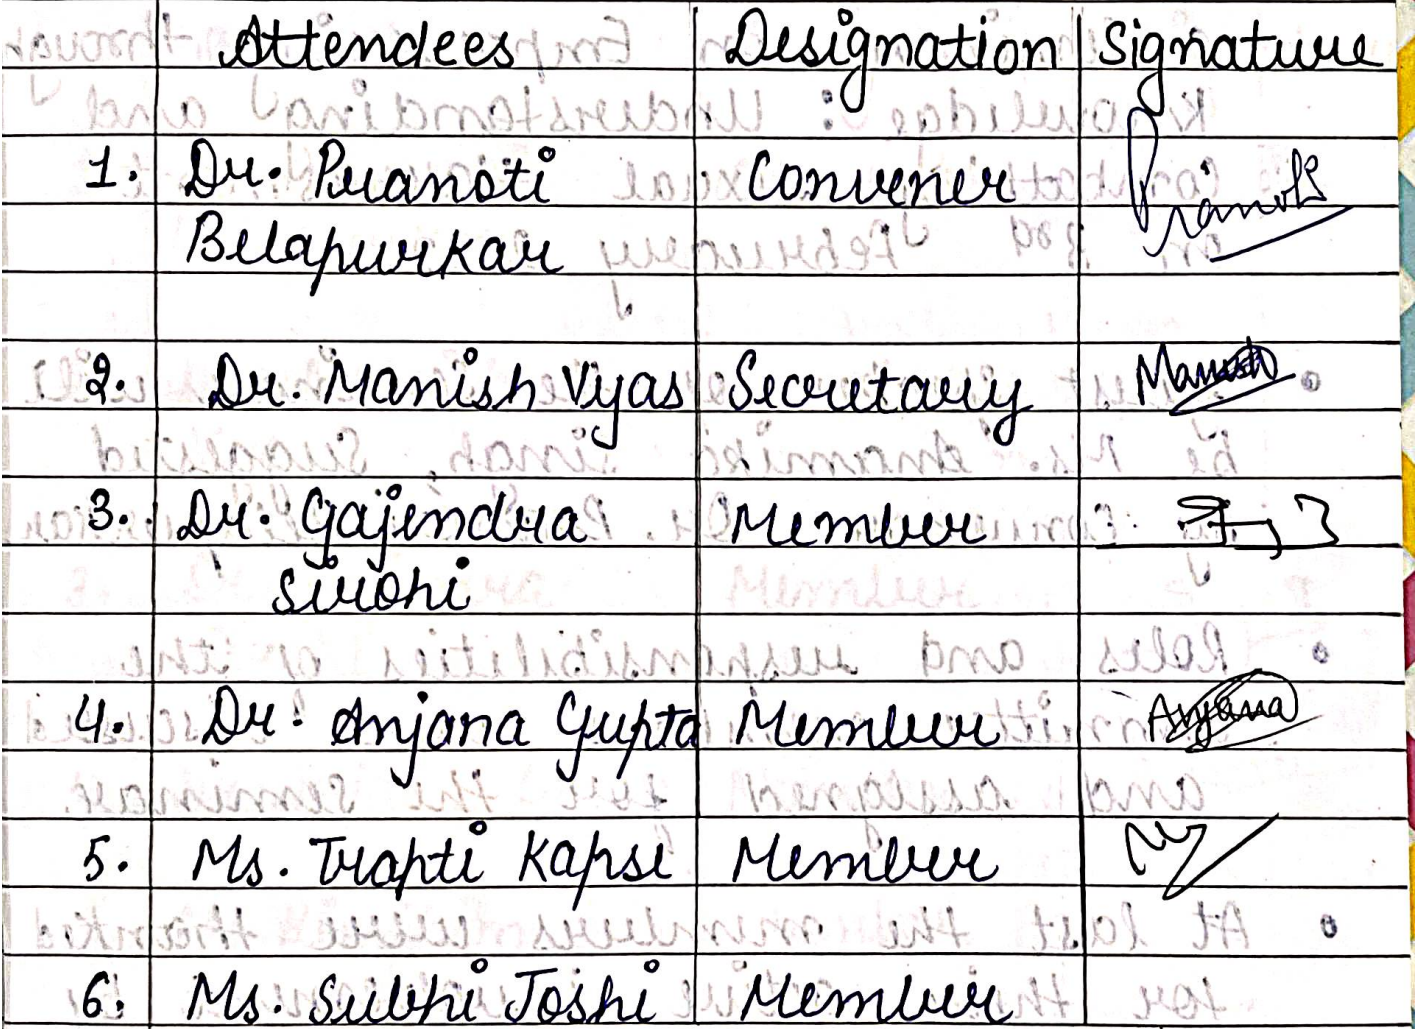 Attendees Designation Signature
1. Dr. Pranoti Convener Pranoti
Belapurkar
2. Dr. Manish Vyas Secretary Manish
3. Dr. Gajendra Member
Sirohi
4. Dr. Anjana Gupta Member Anjana
5. Ms. Trapti Kapse Member
6. Ms. Surbhi Joshi Member